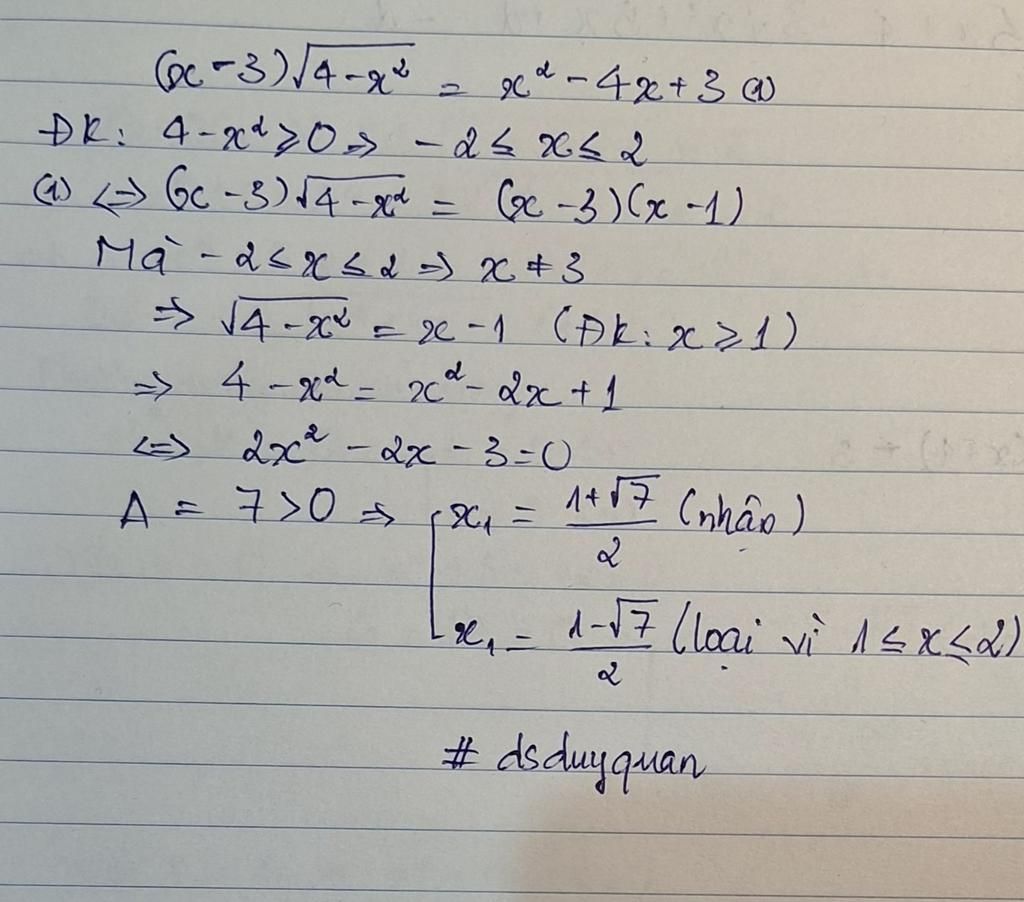 (x-3)√(4-x²) = x² - 4x + 3 (1)
ĐK: 4-x² ≥ 0 ⇒ -2 ≤ x ≤ 2
(1) ⇔ (x-3)√(4-x²) = (x-3)(x-1)
Mà -2 ≤ x ≤ 2 ⇒ x ≠ 3
⇒ √(4-x²) = x-1 (ĐK: x ≥ 1)
⇒ 4-x² = x² - 2x + 1
⇔ 2x² - 2x - 3 = 0
Δ = 7 > 0 ⇒ [ x₁ = (1+√7)/2 (nhận)
x₁ = (1-√7)/2 (loại vì 1 ≤ x ≤ 2)
# dsduyquan